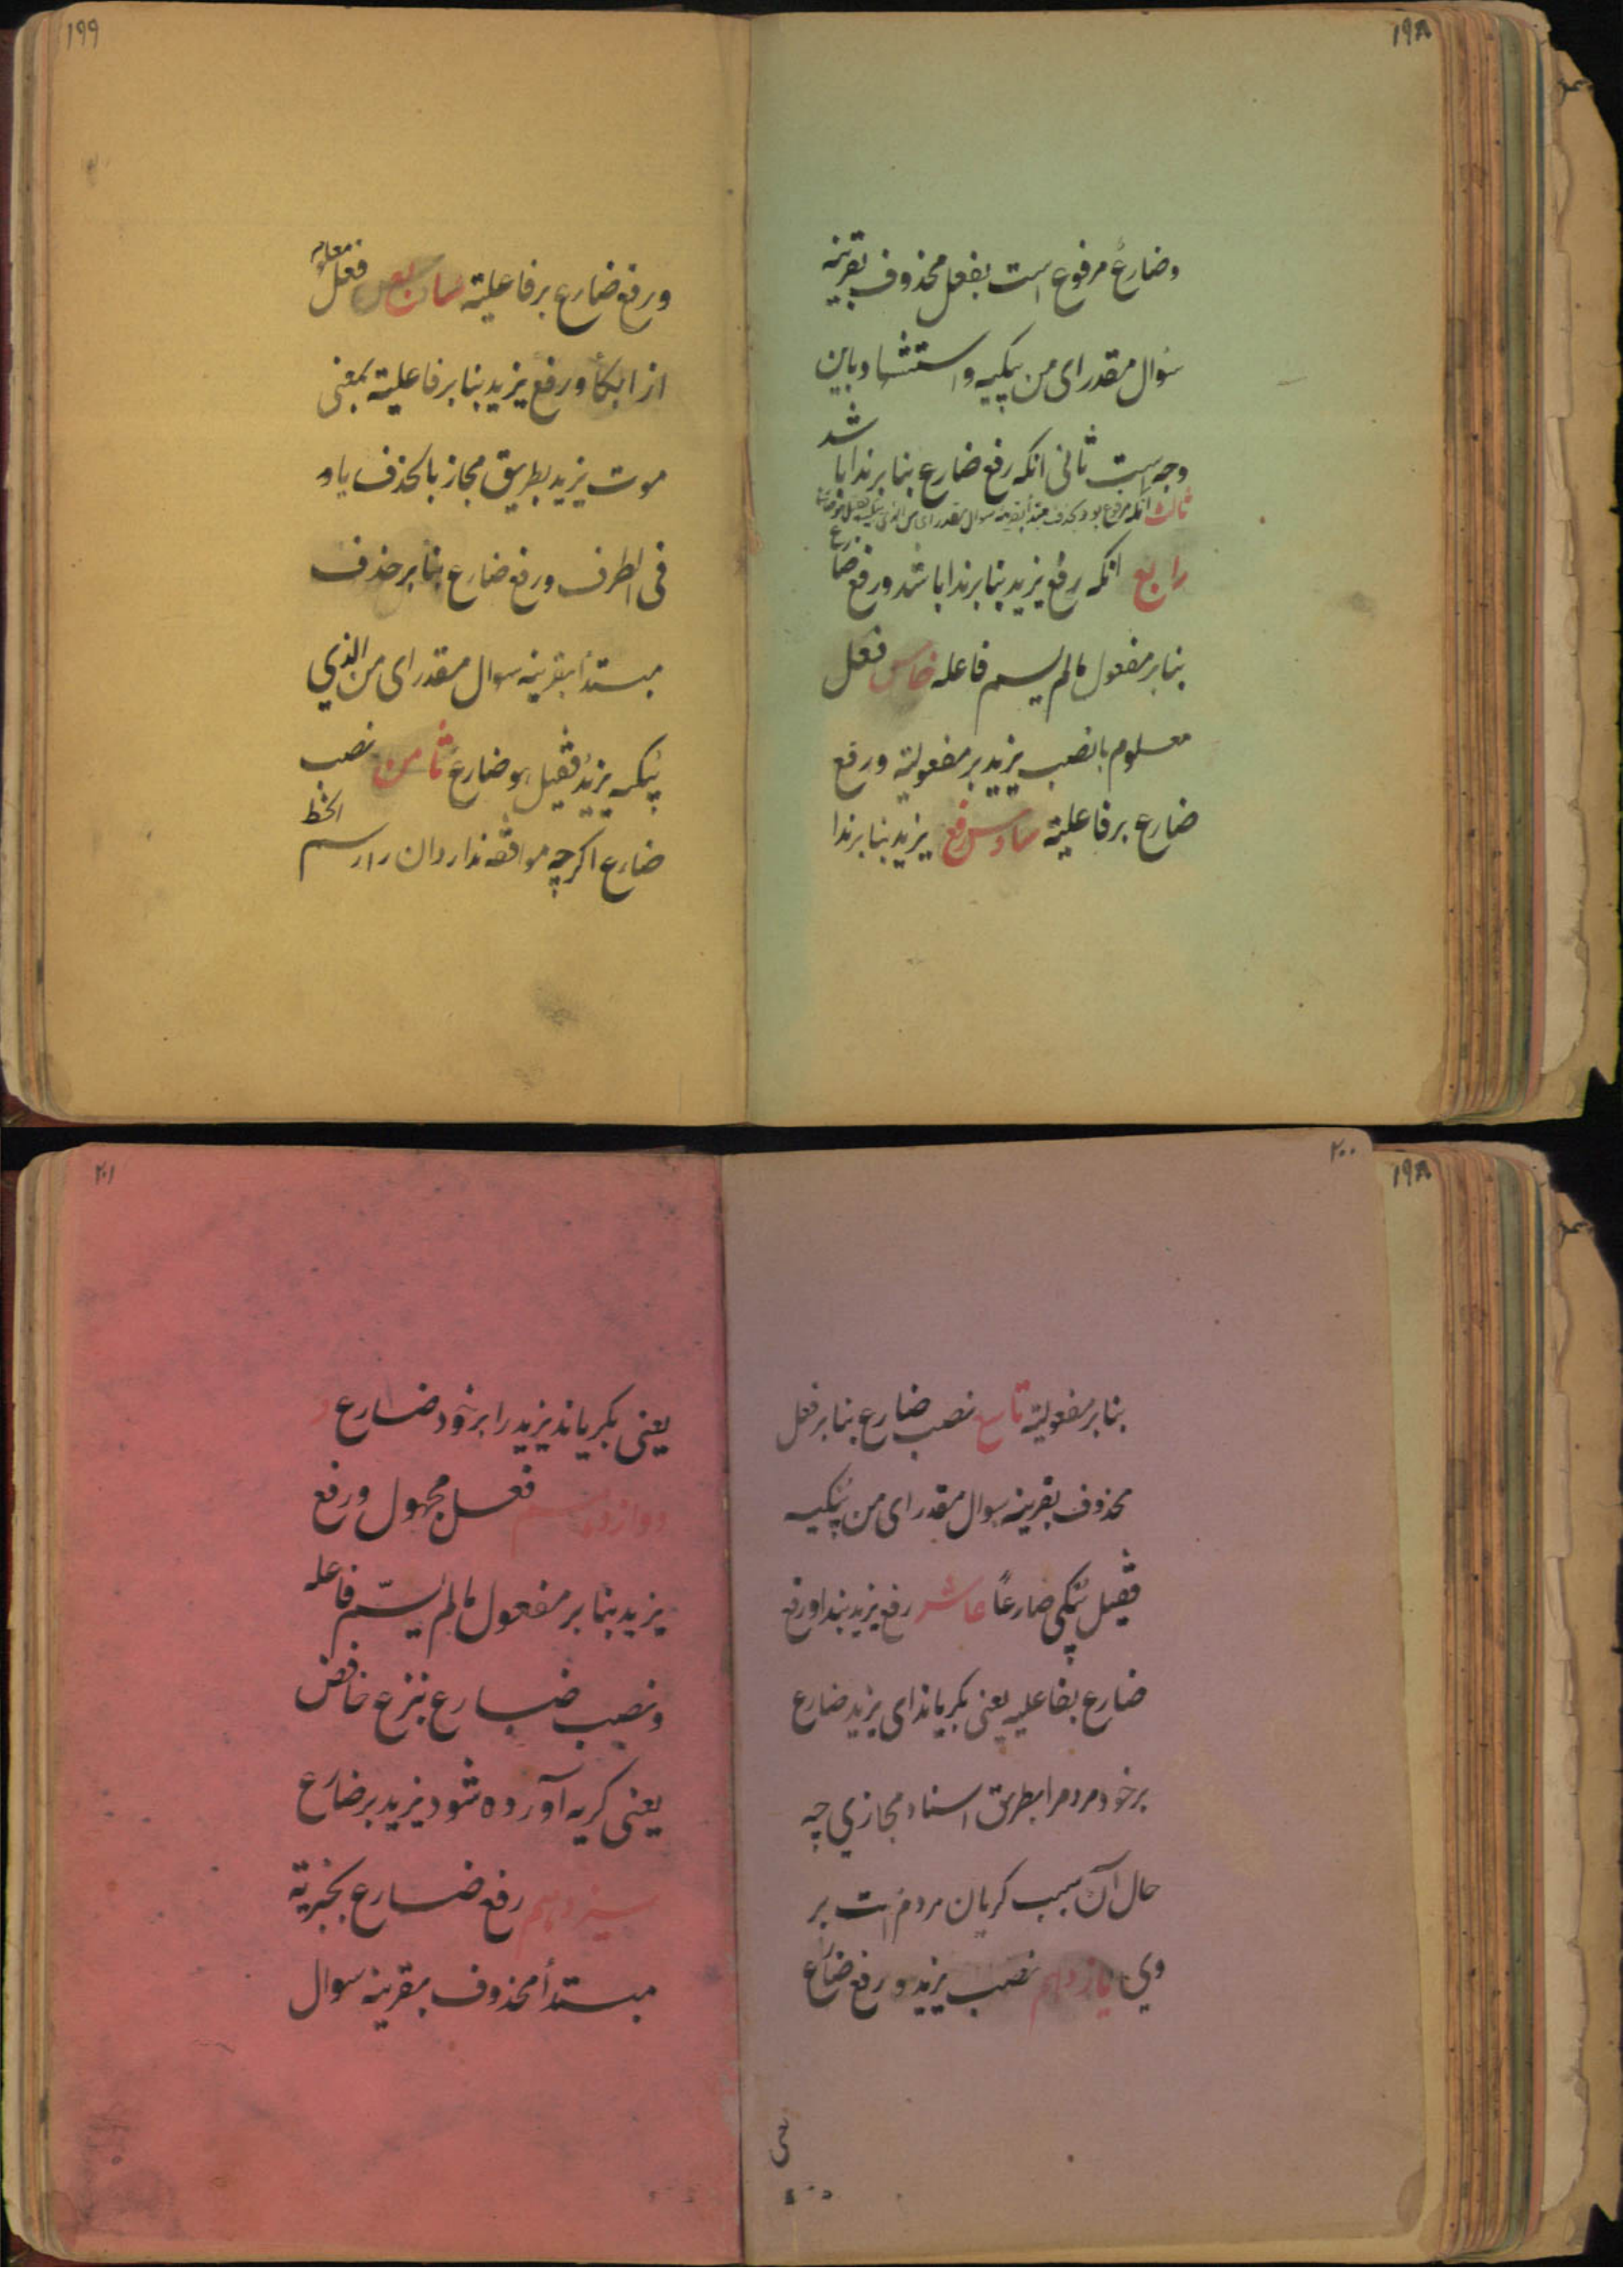 ۱۹۸
وضارع مرفوع است بفعل محذوف بقرینه
سؤال مقدر ای من یبکیه واستشهاد باین
وجه است ثانی انکه رفع ضارع بنا بر ندا باشد
ثالث انکه مرفوع بود بحذف مبتدأ بقرینه سوال مقدر ای من الذی یبکیه
رابع انکه رفع یزید بنا بر ندا باشد ورفع ضارع
بنا بر مفعول مالم یسم فاعله خامس فعل
معلوم با نصب یزید بر مفعولیة ورفع
ضارع بر فاعلیة سادس رفع یزید بنا بر ندا
۱۹۹
ورفع ضارع بر فاعلیة سابع فعل معلوم
از ابکأ ورفع یزید بنا بر فاعلیة بمعنی
موت یزید بطریق مجاز بالحذف یاو
فی الطرف ورفع ضارع بنا بر حذف
مبتدأ بقرینه سوال مقدر ای من الذي
یبکیه یزید فقیل هو ضارع ثامن نصب
ضارع اکرچه موافقه ندارد ان را رسم الخط
۲۰۰
بنا بر مفعولیة تاسع نصب ضارع بنا بر فعل
محذوف بقرینه سوال مقدر ای من یبکیه
فقیل یبکی ضارعًا عاشر رفع یزید بندا ورفع
ضارع بفاعلیه یعنی بکریاند ای یزید ضارع
برخود مردم را بطریق اسناد مجازي چه
حال آن سبب کریان مردم است بر
وي یازدهم نصب یزید و رفع ضارع
۲۰۱
یعنی بکریاند یزید را برخود ضارع و
دوازدهم فعل مجهول ورفع
یزید بنا بر مفعول مالم یسّم فاعله
ونصب ضارع بنزع خافض
یعنی کریه آورده شود یزید بر ضارع
سیزدهم رفع ضارع بخبریة
مبتدأ محذوف بقرینه سوال